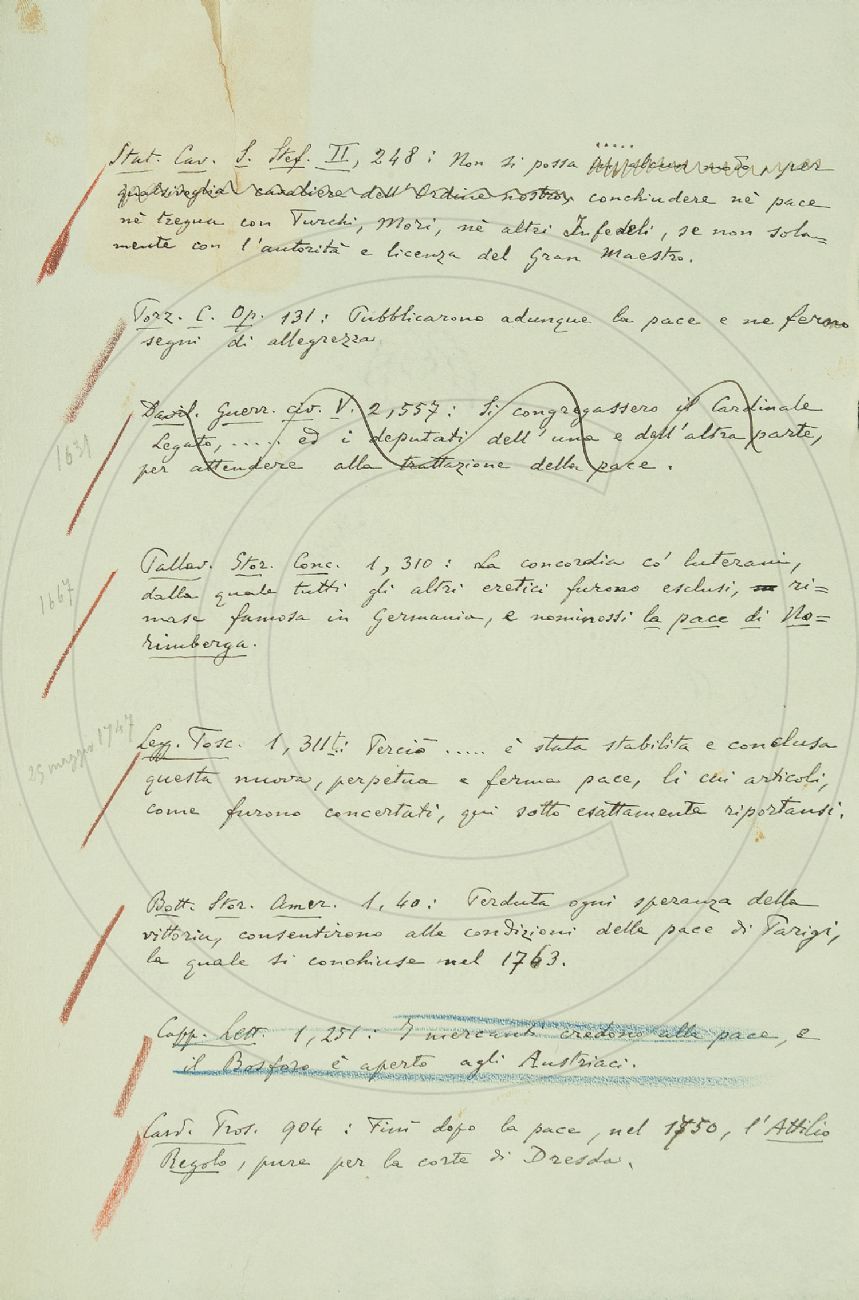 Stat. Cav. S. Stef. II, 248: Non si possa ..... in alcun modo, per
qualsivoglia cavaliere dell'Ordine nostro, conchiudere nè pace
nè tregua con Turchi, Mori, nè altri Infedeli, se non sola=
mente con l'autorità e licenza del Gran Maestro.
Torz. C. Op. 131: Pubblicarono adunque la pace e ne fermo
segni di allegrezza.
1631
Davil. Guerr. civ. V. 2,557: Si congregassero il Cardinale
Legato, ..... ed i deputati dell'una e dell'altra parte,
per attendere alla trattazione della pace.
1667
Pallav. Stor. Conc. 1, 310: La concordia co' luterani,
dalla quale tutti gli altri eretici furono esclusi, ri=
mase famosa in Germania, e nominossi la pace di No=
rimberga.
25 maggio 1747
Legg. Tosc. 1, 311t: Perciò ..... è stata stabilita e conclusa
questa nuova, perpetua e ferma pace, li cui articoli,
come furono concertati, qui sotto esattamente riportansi.
Bott. Stor. Amer. 1, 40: Perduta ogni speranza della
vittoria, consentirono alle condizioni della pace di Parigi,
la quale si conchiuse nel 1763.
Capp. Lett. 1, 251: I mercanti credono alla pace, e
il Bosforo è aperto agli Austriaci.
Card. Pros. 904: Finì dopo la pace, nel 1750, l'Attilio
Regolo, pure per la corte di Dresda.